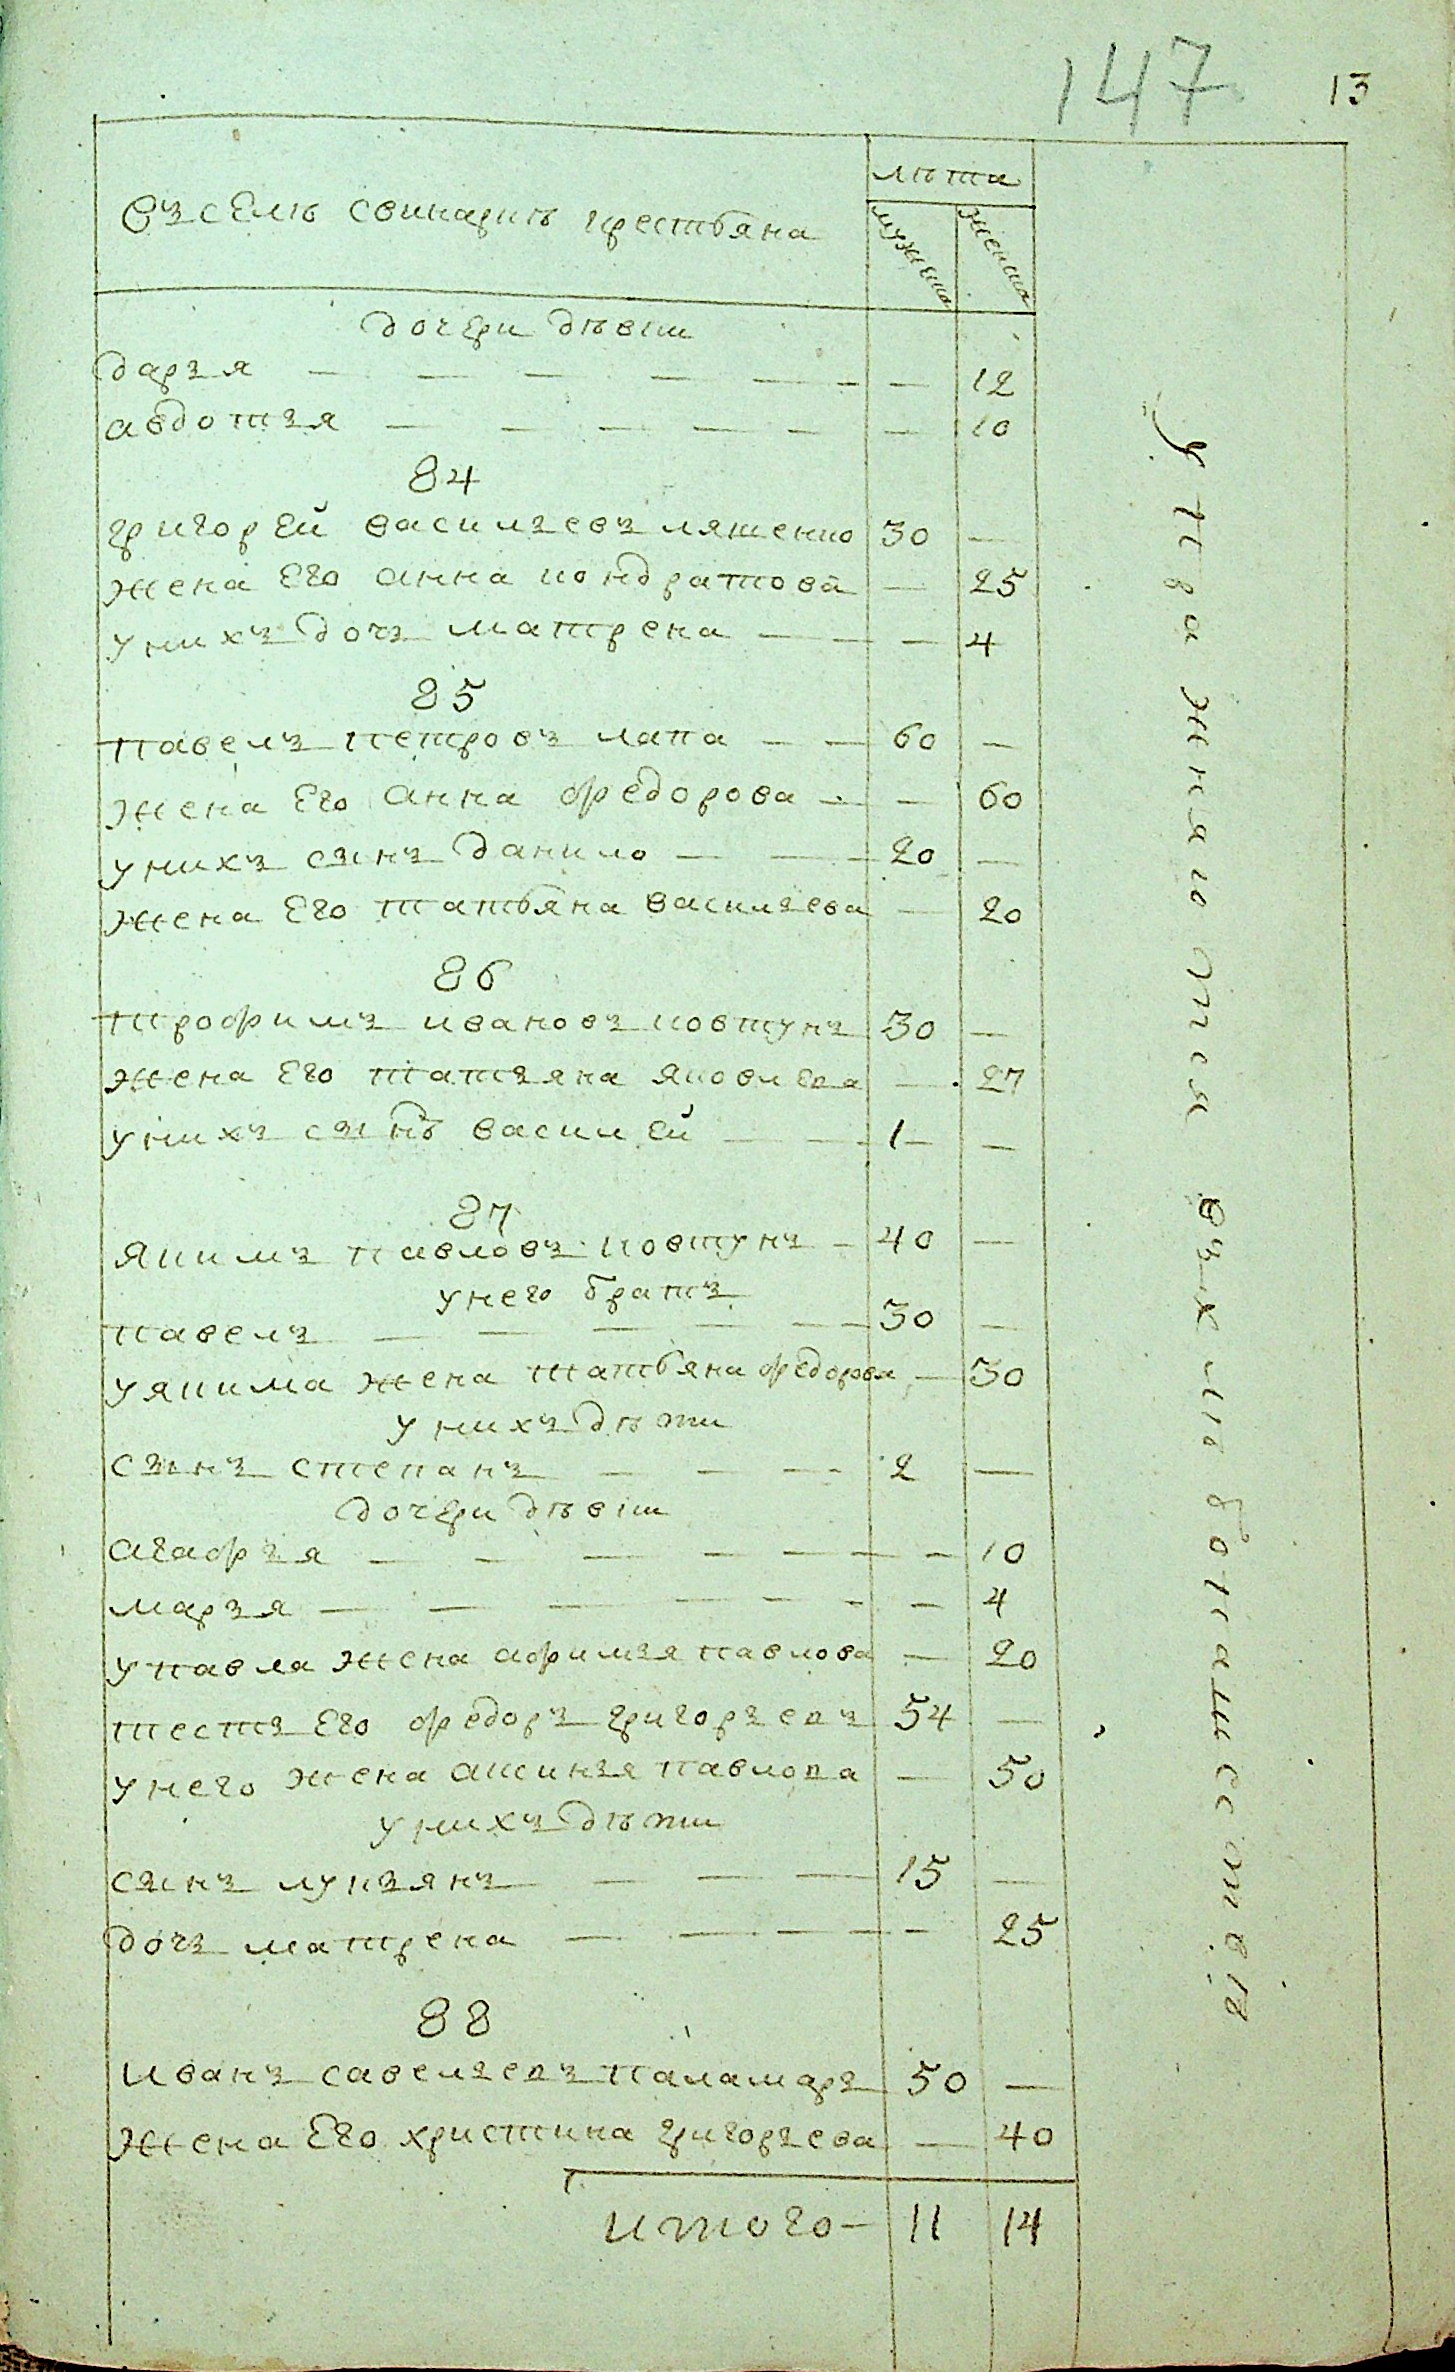 147 13
лѣта
въ селѣ свинарнѣ крестьяна мужска женска
дочери дѣвки
даръя — — — — — — — 12
авдотъя — — — — — — 10
84
григорей василъевъ ляшенко 30 —
жена Его анна кондратова — 25
унихъ дочъ матрена — — — 4
85
павелъ петровъ лапа — — 60 —
жена Его анна федорова — — 60
унихъ сынъ данило — — — 20 —
жена Его татьяна василъева — 20
86
трофимъ ивановъ ковтунъ 30 —
жена Его татъяна яковлева — 27
унихъ сынъ василей — — 1 —
87
якимъ павловъ ковтунъ — 40 —
унего братъ
павелъ — — — — — — 30 —
уякима жена татьяна федорова — 30
унихъ дѣти
сынъ степанъ — — — — 2 —
дочери дѣвки
агафъя — — — — — — — 10
маръя — — — — — — — — 4
упавла жена афимъя павлова — 20
тестъ Его федоръ григоръевъ 54 —
унего жена аксинъя павлова — 50
унихъ дѣти
сынъ лукъянъ — — — 15 —
дочъ матрена — — — — — 25
88
Иванъ савелъевъ паламаръ 50 —
жена Его христина григоръева — 40
итого — 11 14